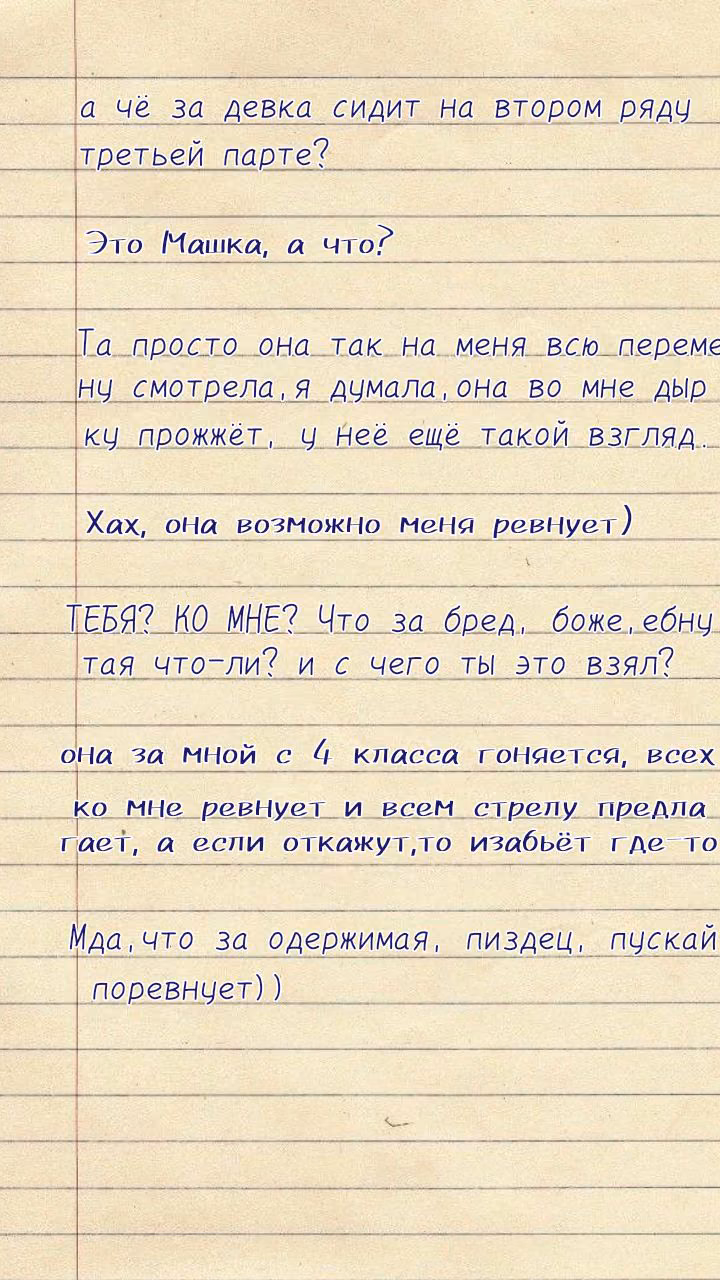 а чё за девка сидит на втором ряду
третьей парте?
Это Машка, а что?
Та просто она так на меня всю переме
ну смотрела,я думала,она во мне дыр
ку прожжёт, у неё ещё такой взгляд.
Хах, она возможно меня ревнует)
ТЕБЯ? КО МНЕ? Что за бред, боже,ебну
тая что-ли? и с чего ты это взял?
она за мной с 4 класса гоняется, всех
ко мне ревнует и всем стрелу предла
гает, а если откажут,то изабьёт где-то
Мда,что за одержимая, пиздец, пускай
поревнует))